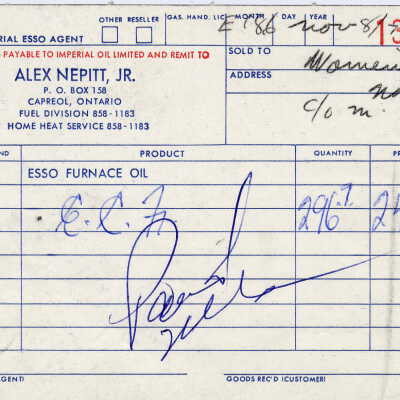 OTHER RESELLER
GAS. HAND. LIC. MONTH DAY YEAR
RIAL ESSO AGENT
E '86 Nov 8/
PAYABLE TO IMPERIAL OIL LIMITED AND REMIT TO
ALEX NEPITT, JR.
P. O. BOX 158
CAPREOL, ONTARIO
FUEL DIVISION 858-1183
HOME HEAT SERVICE 858-1183
SOLD TO
Women
ADDRESS
c/o m.
ND PRODUCT QUANTITY PR
ESSO FURNACE OIL
296.7
Paid
AGENT) GOODS REC'D (CUSTOMER)